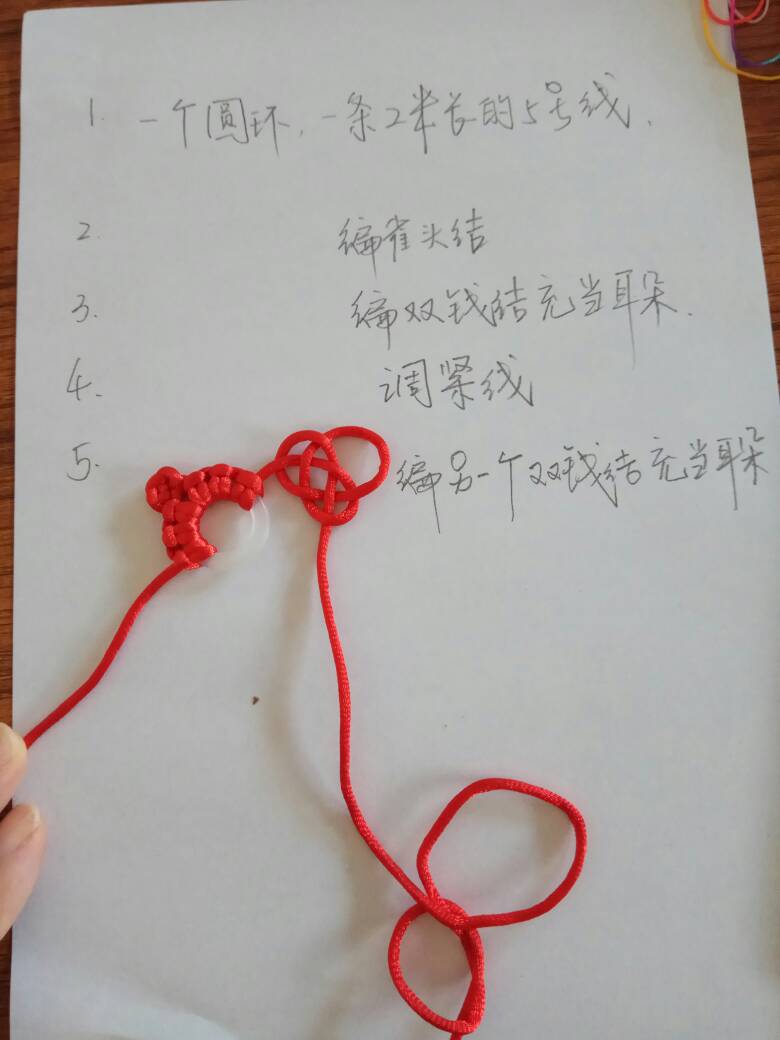 1. 一个圆环，一条2米长的5号线.
2. 编雀头结
3. 编双钱结充当耳朵.
4. 调紧线
5. 编另一个双钱结充当耳朵